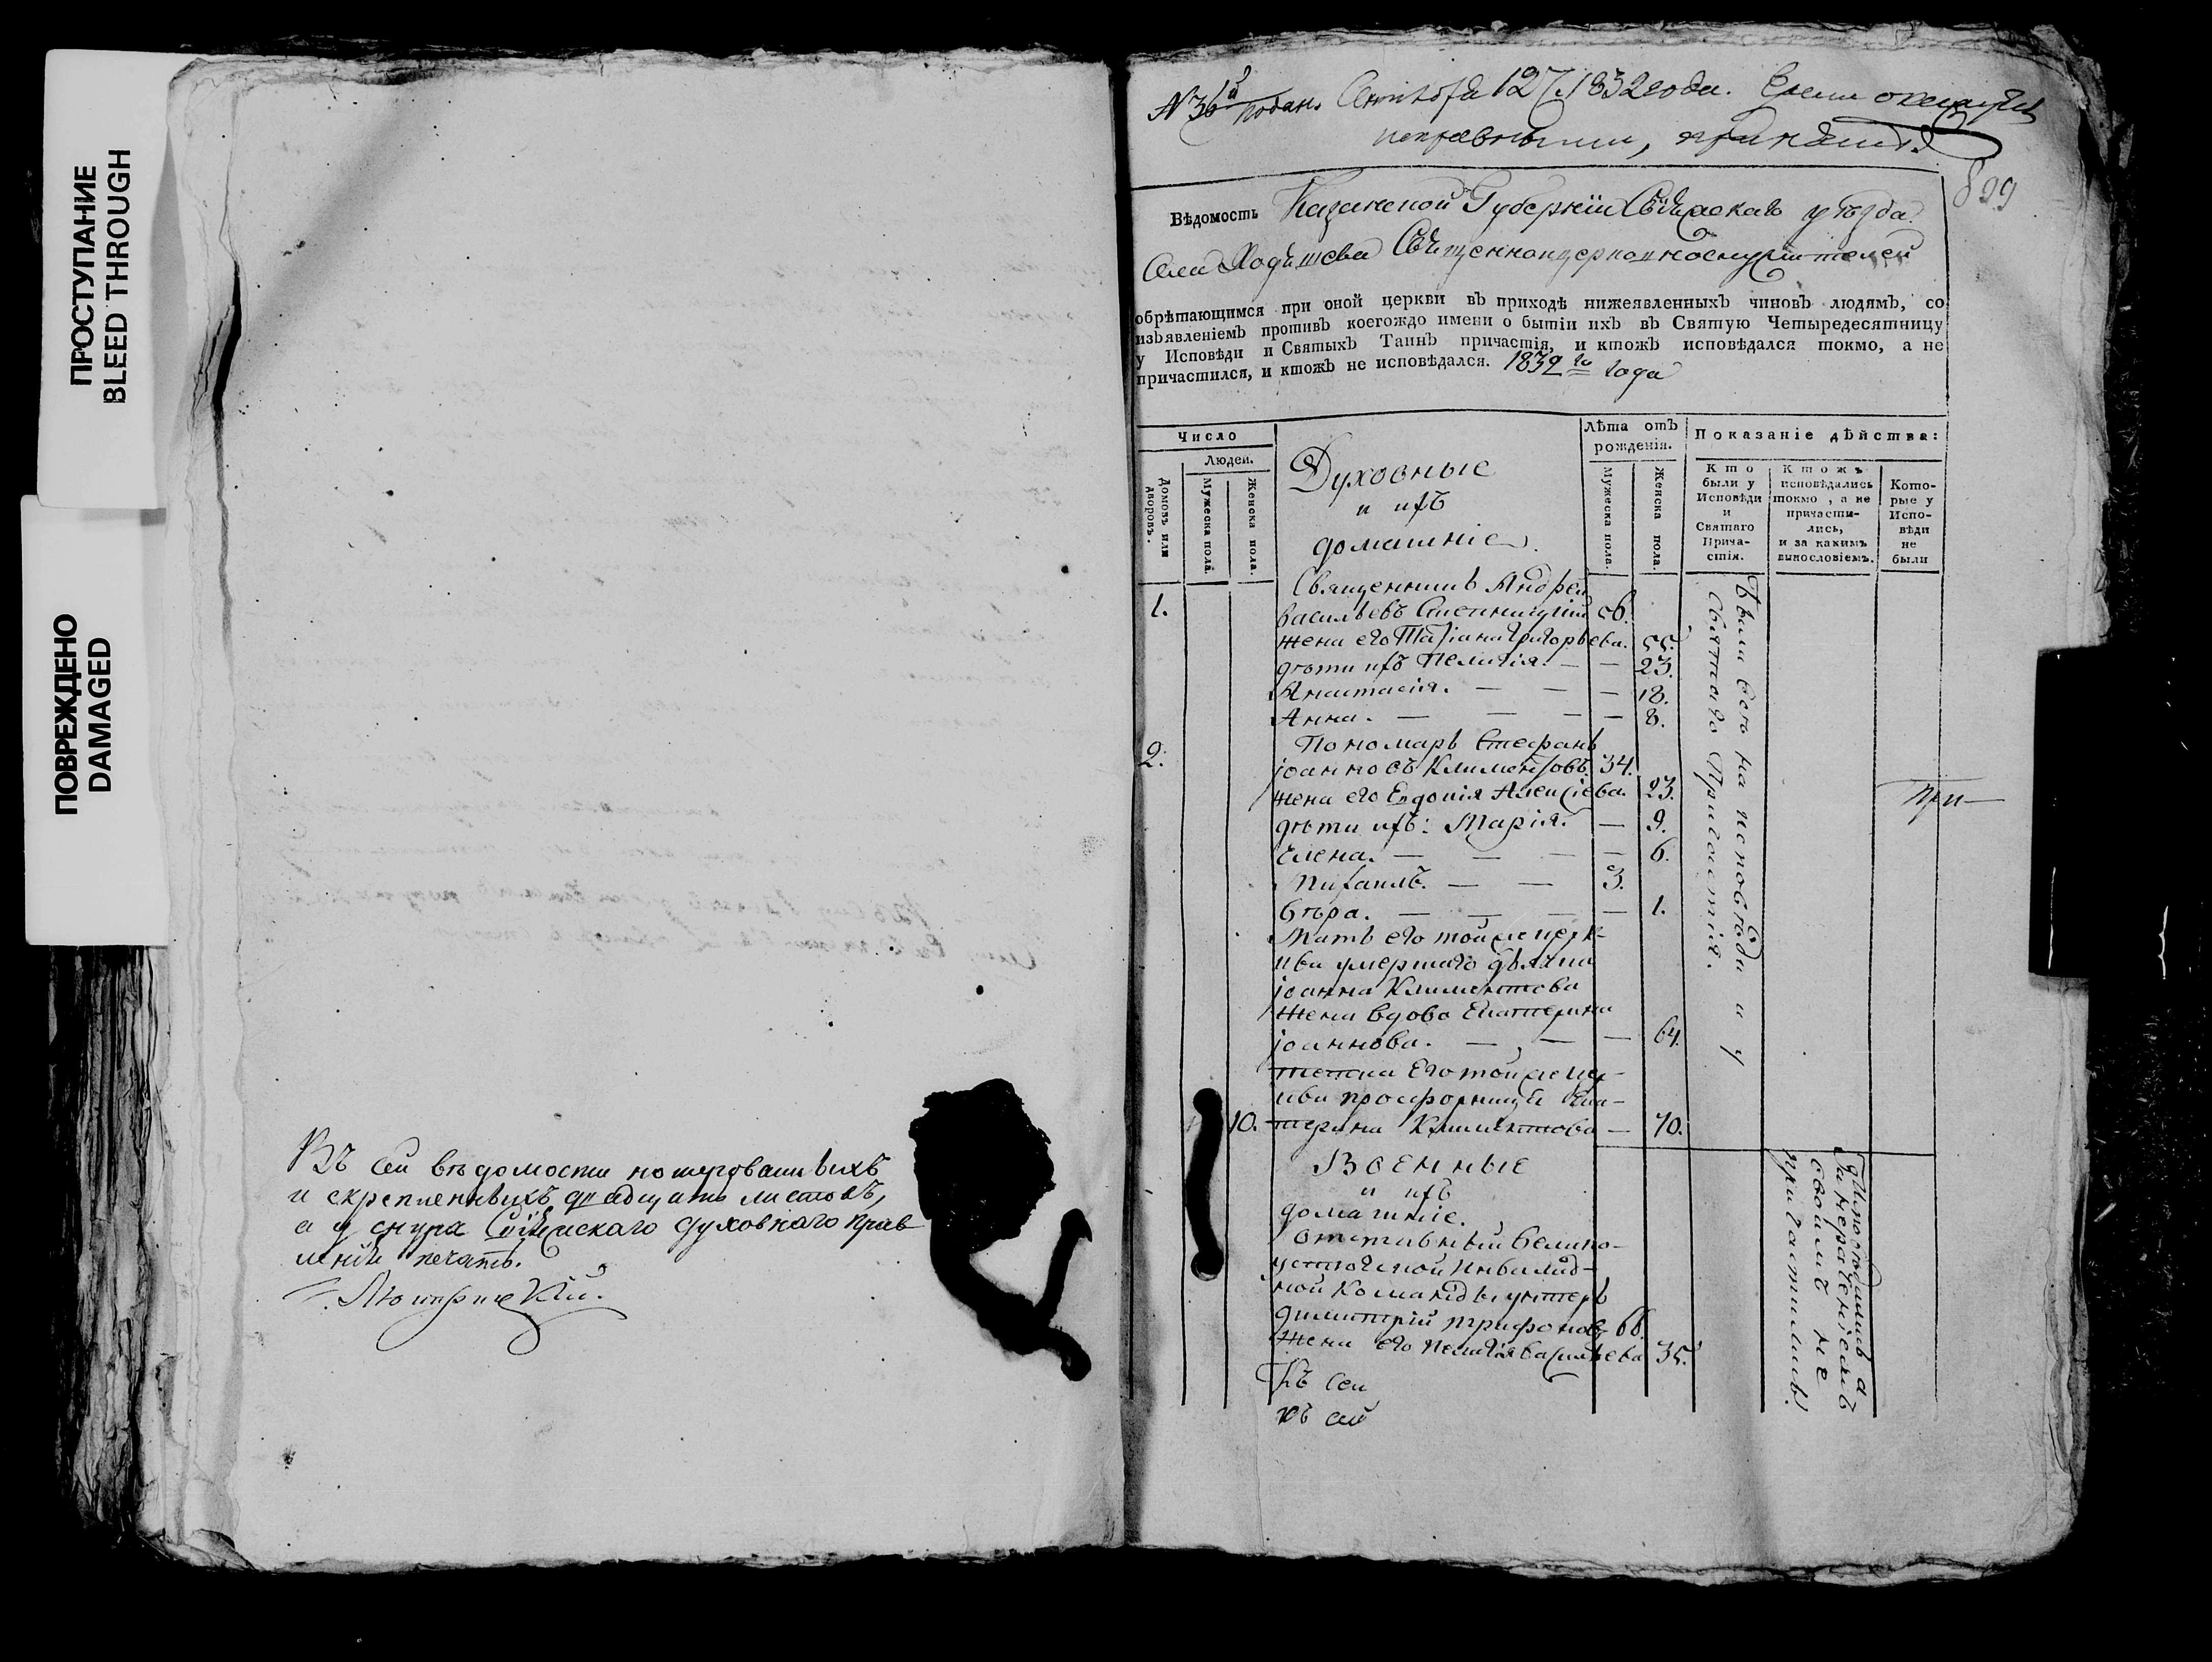 ПРОСТУПАНИЕ
BLEED THROUGH
ПОВРЕЖДЕНО
DAMAGED
Въ сей вѣдомости номерованныхъ
и скрепленныхъ двадцать листовъ,
а у снура Свіяжскаго духовнаго прав
ленія печать.
№ 36й подан. Сентября 12 1832 года.
исправными,
899
Вѣдомость Казанской Губерніи Свіяжскаго уѣзда
Села Ходяшева Священноцерковнослужителей
обрѣтающимся при оной церкви въ приходѣ нижеявленныхъ чиновъ людямъ, со
изъявленіемъ противъ коегождо имени о бытіи ихъ въ Святую Четыредесятницу
у Исповѣди и Святыхъ Таинъ причастія, и ктожъ исповѣдался токмо, а не
причастился, и ктожъ не исповѣдался. 1832го года
Число
Людей.
Домовъ или дворовъ.
Мужеска пола.
Женска пола.
Духовные
и ихъ
домашніе.
Лѣта отъ
рожденія.
Мужеска пола.
Женска пола.
Показаніе дѣйства:
Кто
были у
Исповѣди
и
Святаго
Прича-
стія.
Ктожъ
исповѣдались
токмо, а не
причасти-
лись,
и за какимъ
винословіемъ.
Кото-
рые у
Испо-
вѣди
не
были
1.
Священникъ Андрей
Васильевъ 56.
жена его Татіана Григорьева. 55.
дѣти ихъ Пелагія. — — 23.
Анастасія. — — — 18.
Анна. — — — — 8.
2.
Пономарь Стефанъ
Іоанновъ Климентовъ. 34.
жена его Евдокія Алексіева. 23.
дѣти ихъ: Марія. — 9.
Елена. — — — — 6.
Михаилъ. — — 3.
Вѣра. — — — — 1.
Мать его той же церк-
ви умершаго дьячка
Іоанна Климентова
жена вдова Екатерина
Іоаннова. — — — 64.
тетка его той же цер-
кви просфорница Ека-
10. терина Климентова — 70.
Были всѣ на исповѣди и у
Святаго Причастія.
Военные
и ихъ
домашніе.
Отставный Велико-
устюжской Инвалид-
ной Команды унтеръ
Димитрій Трифоновъ 66.
жена его Пелагія Васильева 35.
Исповѣдались а
за нераченіемъ
своимъ не
причастились.
Къ сей
къ сей